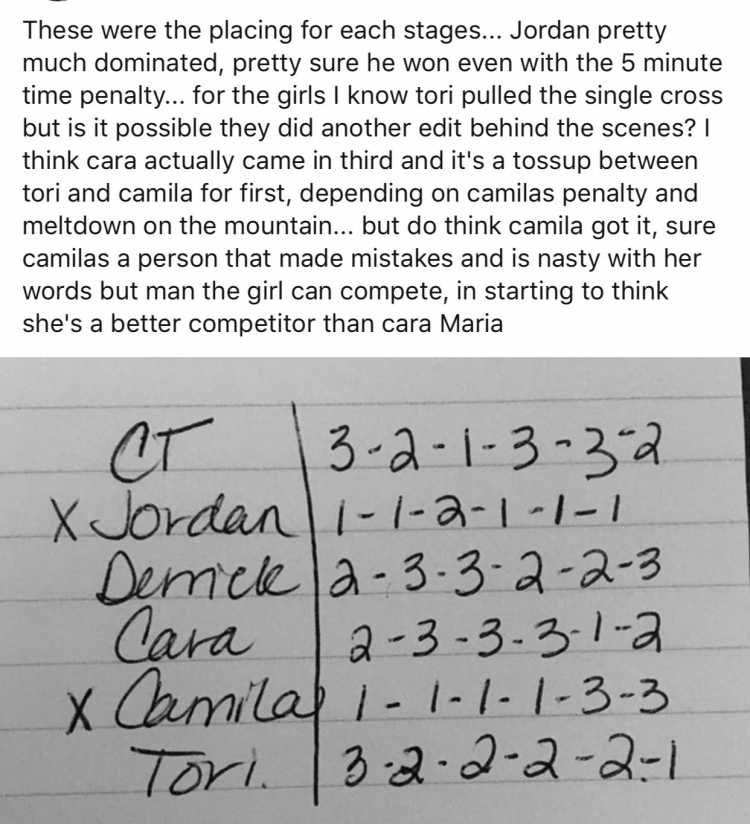 These were the placing for each stages... Jordan pretty
much dominated, pretty sure he won even with the 5 minute
time penalty... for the girls I know tori pulled the single cross
but is it possible they did another edit behind the scenes? I
think cara actually came in third and it's a tossup between
tori and camila for first, depending on camilas penalty and
meltdown on the mountain... but do think camila got it, sure
camilas a person that made mistakes and is nasty with her
words but man the girl can compete, in starting to think
she's a better competitor than cara Maria
CT 3-2-1-3-3-2
X Jordan 1-1-2-1-1-1
Derrick 2-3-3-2-2-3
Cara 2-3-3-3-1-2
X Camila 1-1-1-1-3-3
Tori. 3-2-2-2-2-1